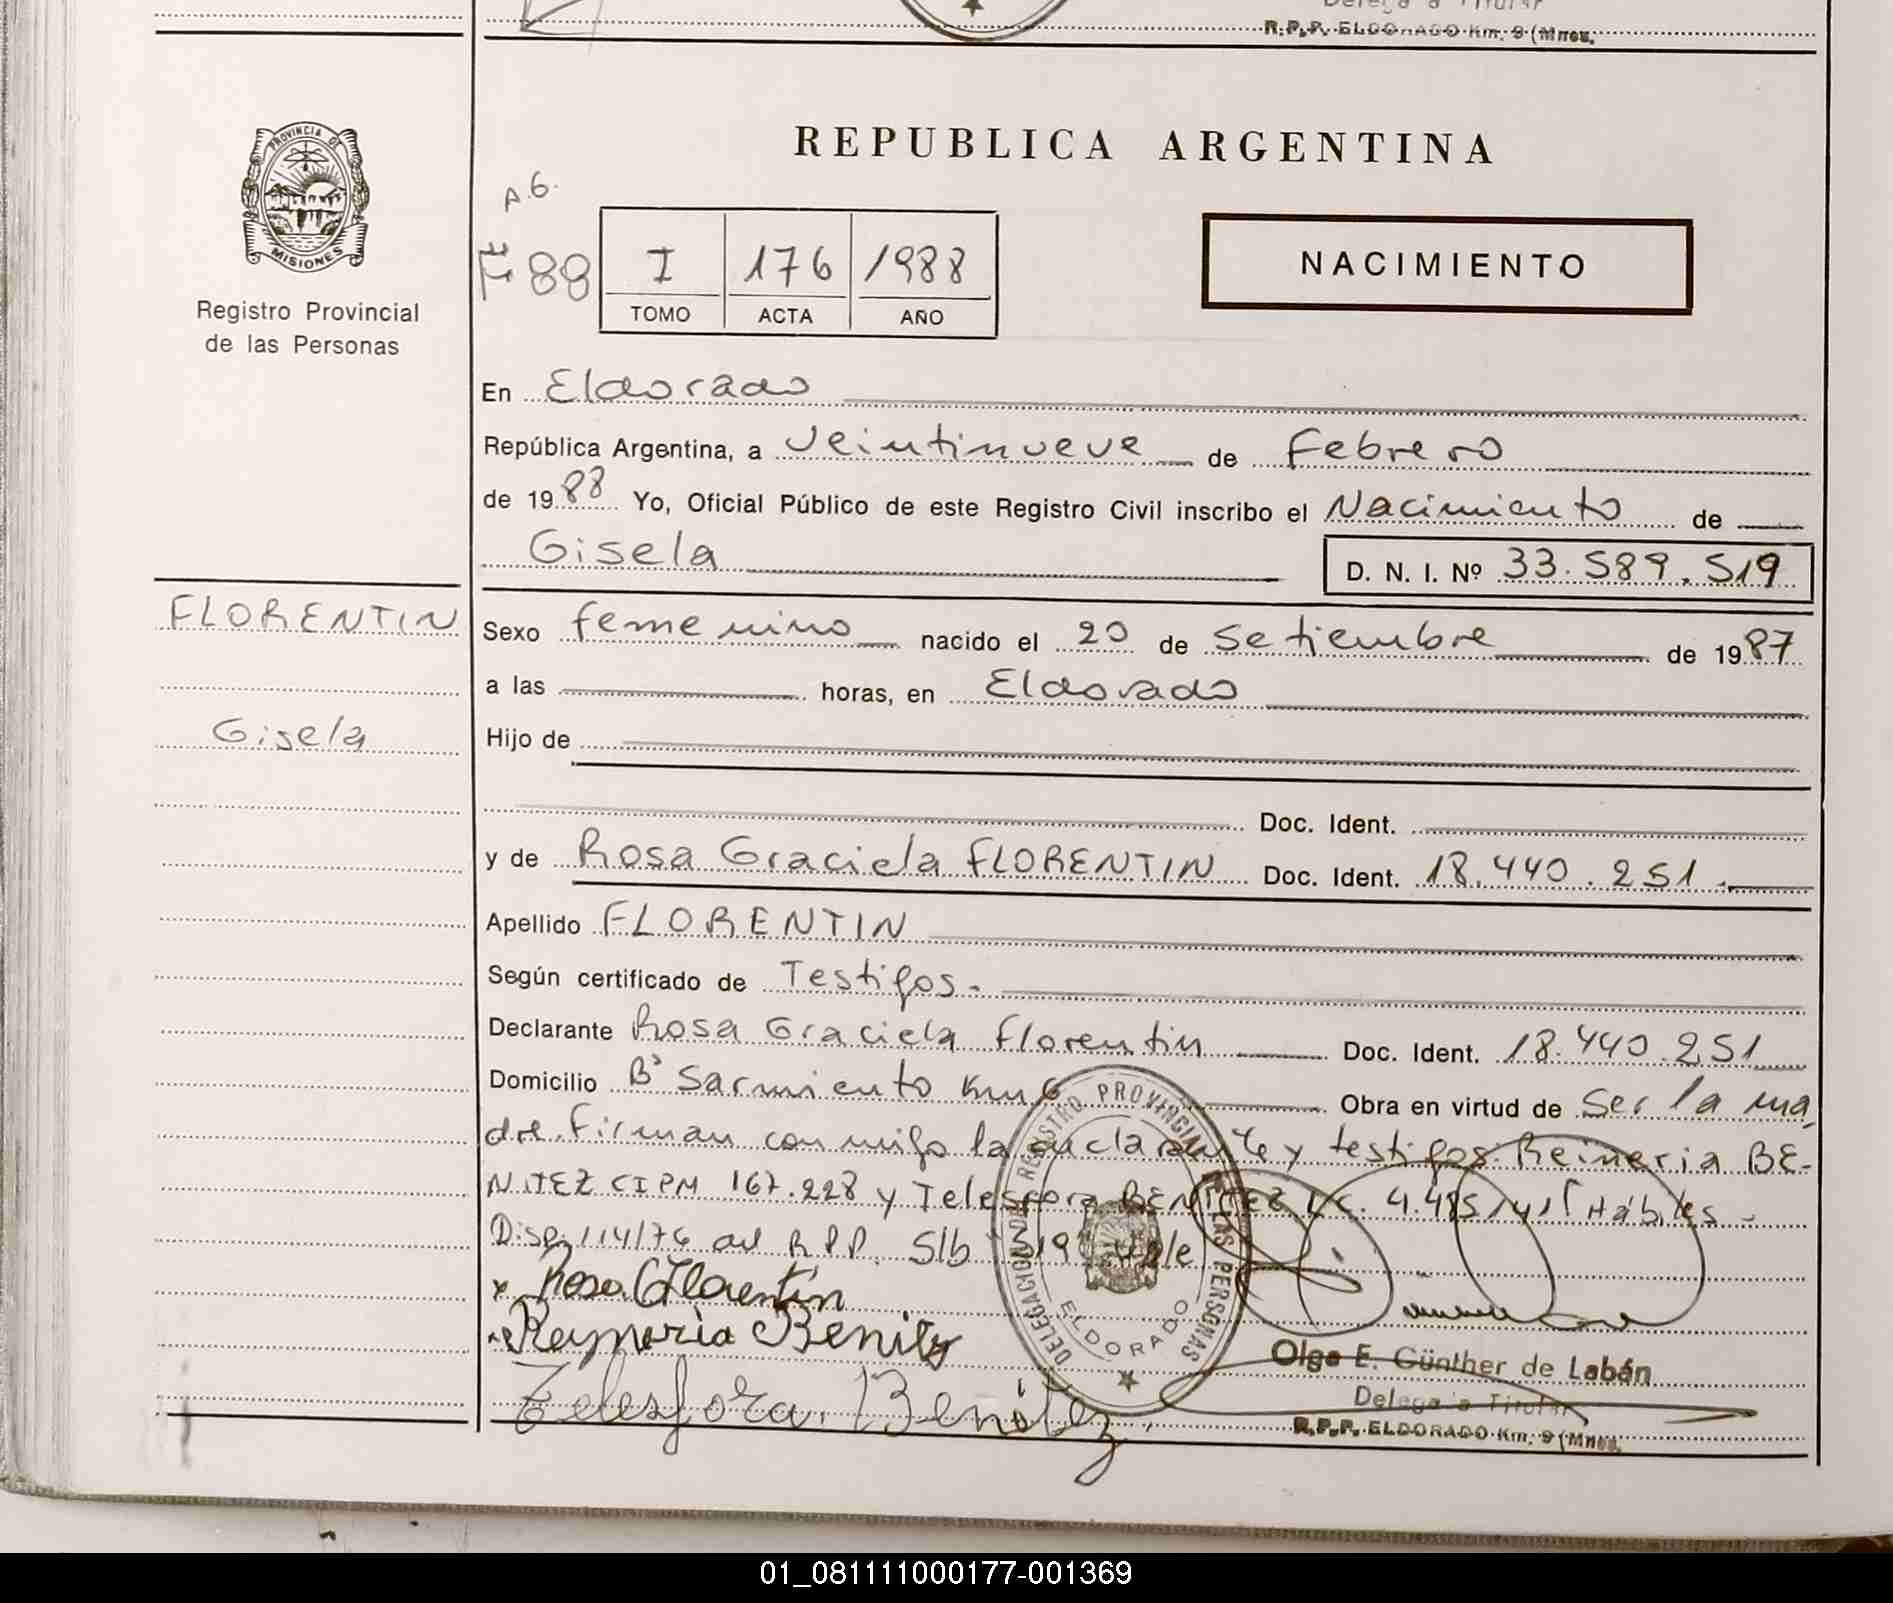 R.P.P. ELDORADO Km. 9 (Mnes.
PROVINCIA DE
MISIONES
Registro Provincial
de las Personas
REPUBLICA ARGENTINA
A.6.
F 88
I 176 1988
TOMO ACTA AÑO
NACIMIENTO
En Eldorado
República Argentina, a Veintinueve de Febrero
de 1988 Yo, Oficial Público de este Registro Civil inscribo el Nacimiento de
Gisela D. N. I. Nº 33.589.519
FLORENTIN
Sexo femenino nacido el 20 de Setiembre de 1987
a las horas, en Eldorado
Gisela
Hijo de
Doc. Ident.
y de Rosa Graciela FLORENTIN Doc. Ident. 18.440.251.
Apellido FLORENTIN
Según certificado de Testigos.
Declarante Rosa Graciela Florentin Doc. Ident. 18.440.251
Domicilio Bº Sarmiento Km 6 Obra en virtud de Ser la ma
dre. Firman conmigo la declarante y testigos: Reineria BE-
NITEZ CIPM 167.228 y Telesfora BENITEZ LC. Hábiles.
Disp. 114/76 del R.P.P. S/b Vale
x Rosa G Florentín
Reyneria Benitez
Telesfora Benitez
DELEGACION DEL REGISTRO PROVINCIAL DE LAS PERSONAS
ELDORADO
Olga E. Günther de Labán
Delegada Titular
R.P.P. ELDORADO Km. 9 (Mnes.
01_081111000177-001369